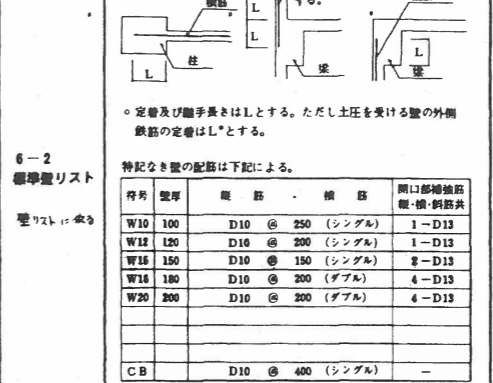 横筋
する。
L
L
L
L
柱
梁
梁
○ 定着及び継手長さはLとする。ただし土圧を受ける壁の外側
鉄筋の定着はL*とする。
6－2
標準壁リスト
壁リストに依る
特記なき壁の配筋は下記による。
符号 壁厚 縦 筋 ・ 横 筋 開口部補強筋
縦・横・斜筋共
W10 100 D10 @ 250 (シングル) 1－D13
W12 120 D10 @ 200 (シングル) 1－D13
W15 150 D10 @ 150 (シングル) 2－D13
W18 180 D10 @ 200 (ダブル) 4－D13
W20 200 D10 @ 200 (ダブル) 4－D13
CB D10 @ 400 (シングル) －